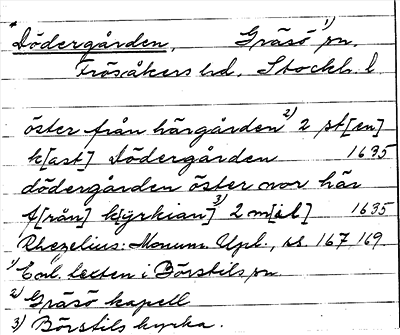 *Dödergården, Gräsö 1) sn.
Frösåkers hd, Stockh. l.
öster från härgården 2) 2 st[en]
k[ast] dödergården 1635
dödergården öster nor här
f[rån] k[yrkian] 3) 2 m[ål] 1635
Rhezelius: Monum. Upl., ss. 167 169.
1) Enl. texten i Börstils sn.
2) Gräsö kapell
3) Börstils kyrka.